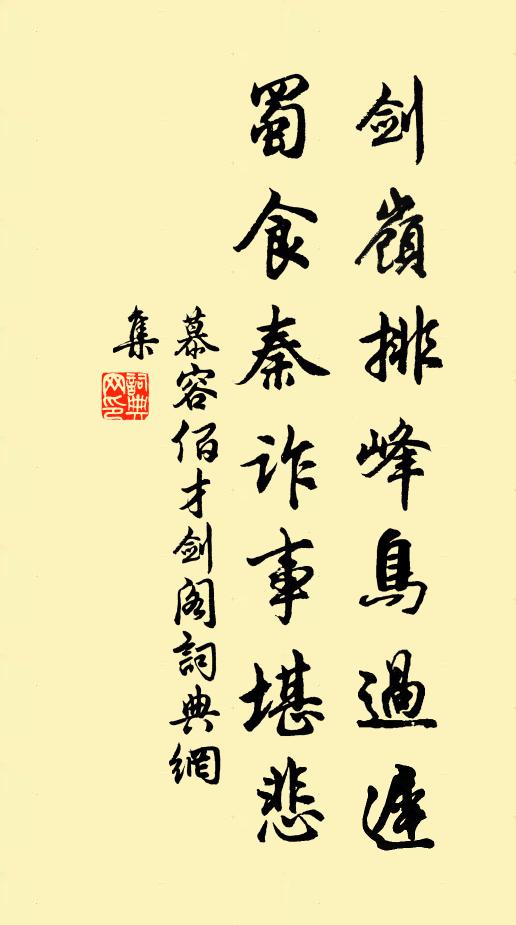 劍嶺排峰鳥過遲
蜀食秦詐事堪悲
慕容佰才劍閣詞典網
集
詞典
网印